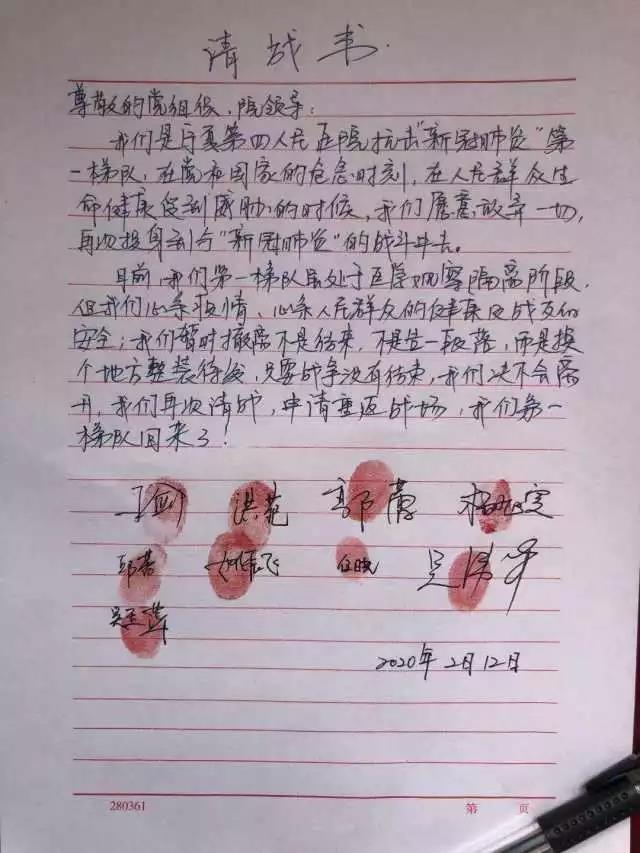 请战书
尊敬的党组织、院领导：
我们是宁夏第四人民医院抗击"新冠肺炎"第
一梯队，在党和国家的危急时刻，在人民群众生
命健康受到威胁的时候，我们愿意放弃一切，
再次投身到与"新冠肺炎"的战斗中去。
目前，我们第一梯队虽处于医学观察隔离阶段，
但我们心系疫情、心系人民群众的健康及战友的
安全；我们暂时撤离不是结束，不是告一段落，而是换
个地方整装待线，只要战争没有结束，我们决不会离
开，我们再次请战，申请重返战场，我们第一
梯队回来了！
洪苑 郭蕾
邱蓉 任晓
2020年2月12日
280361 第 页